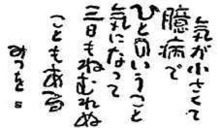 気が小さくて
臆病で
ひとのいうこと
気になって
三日もねむれぬ
こともある
みつを